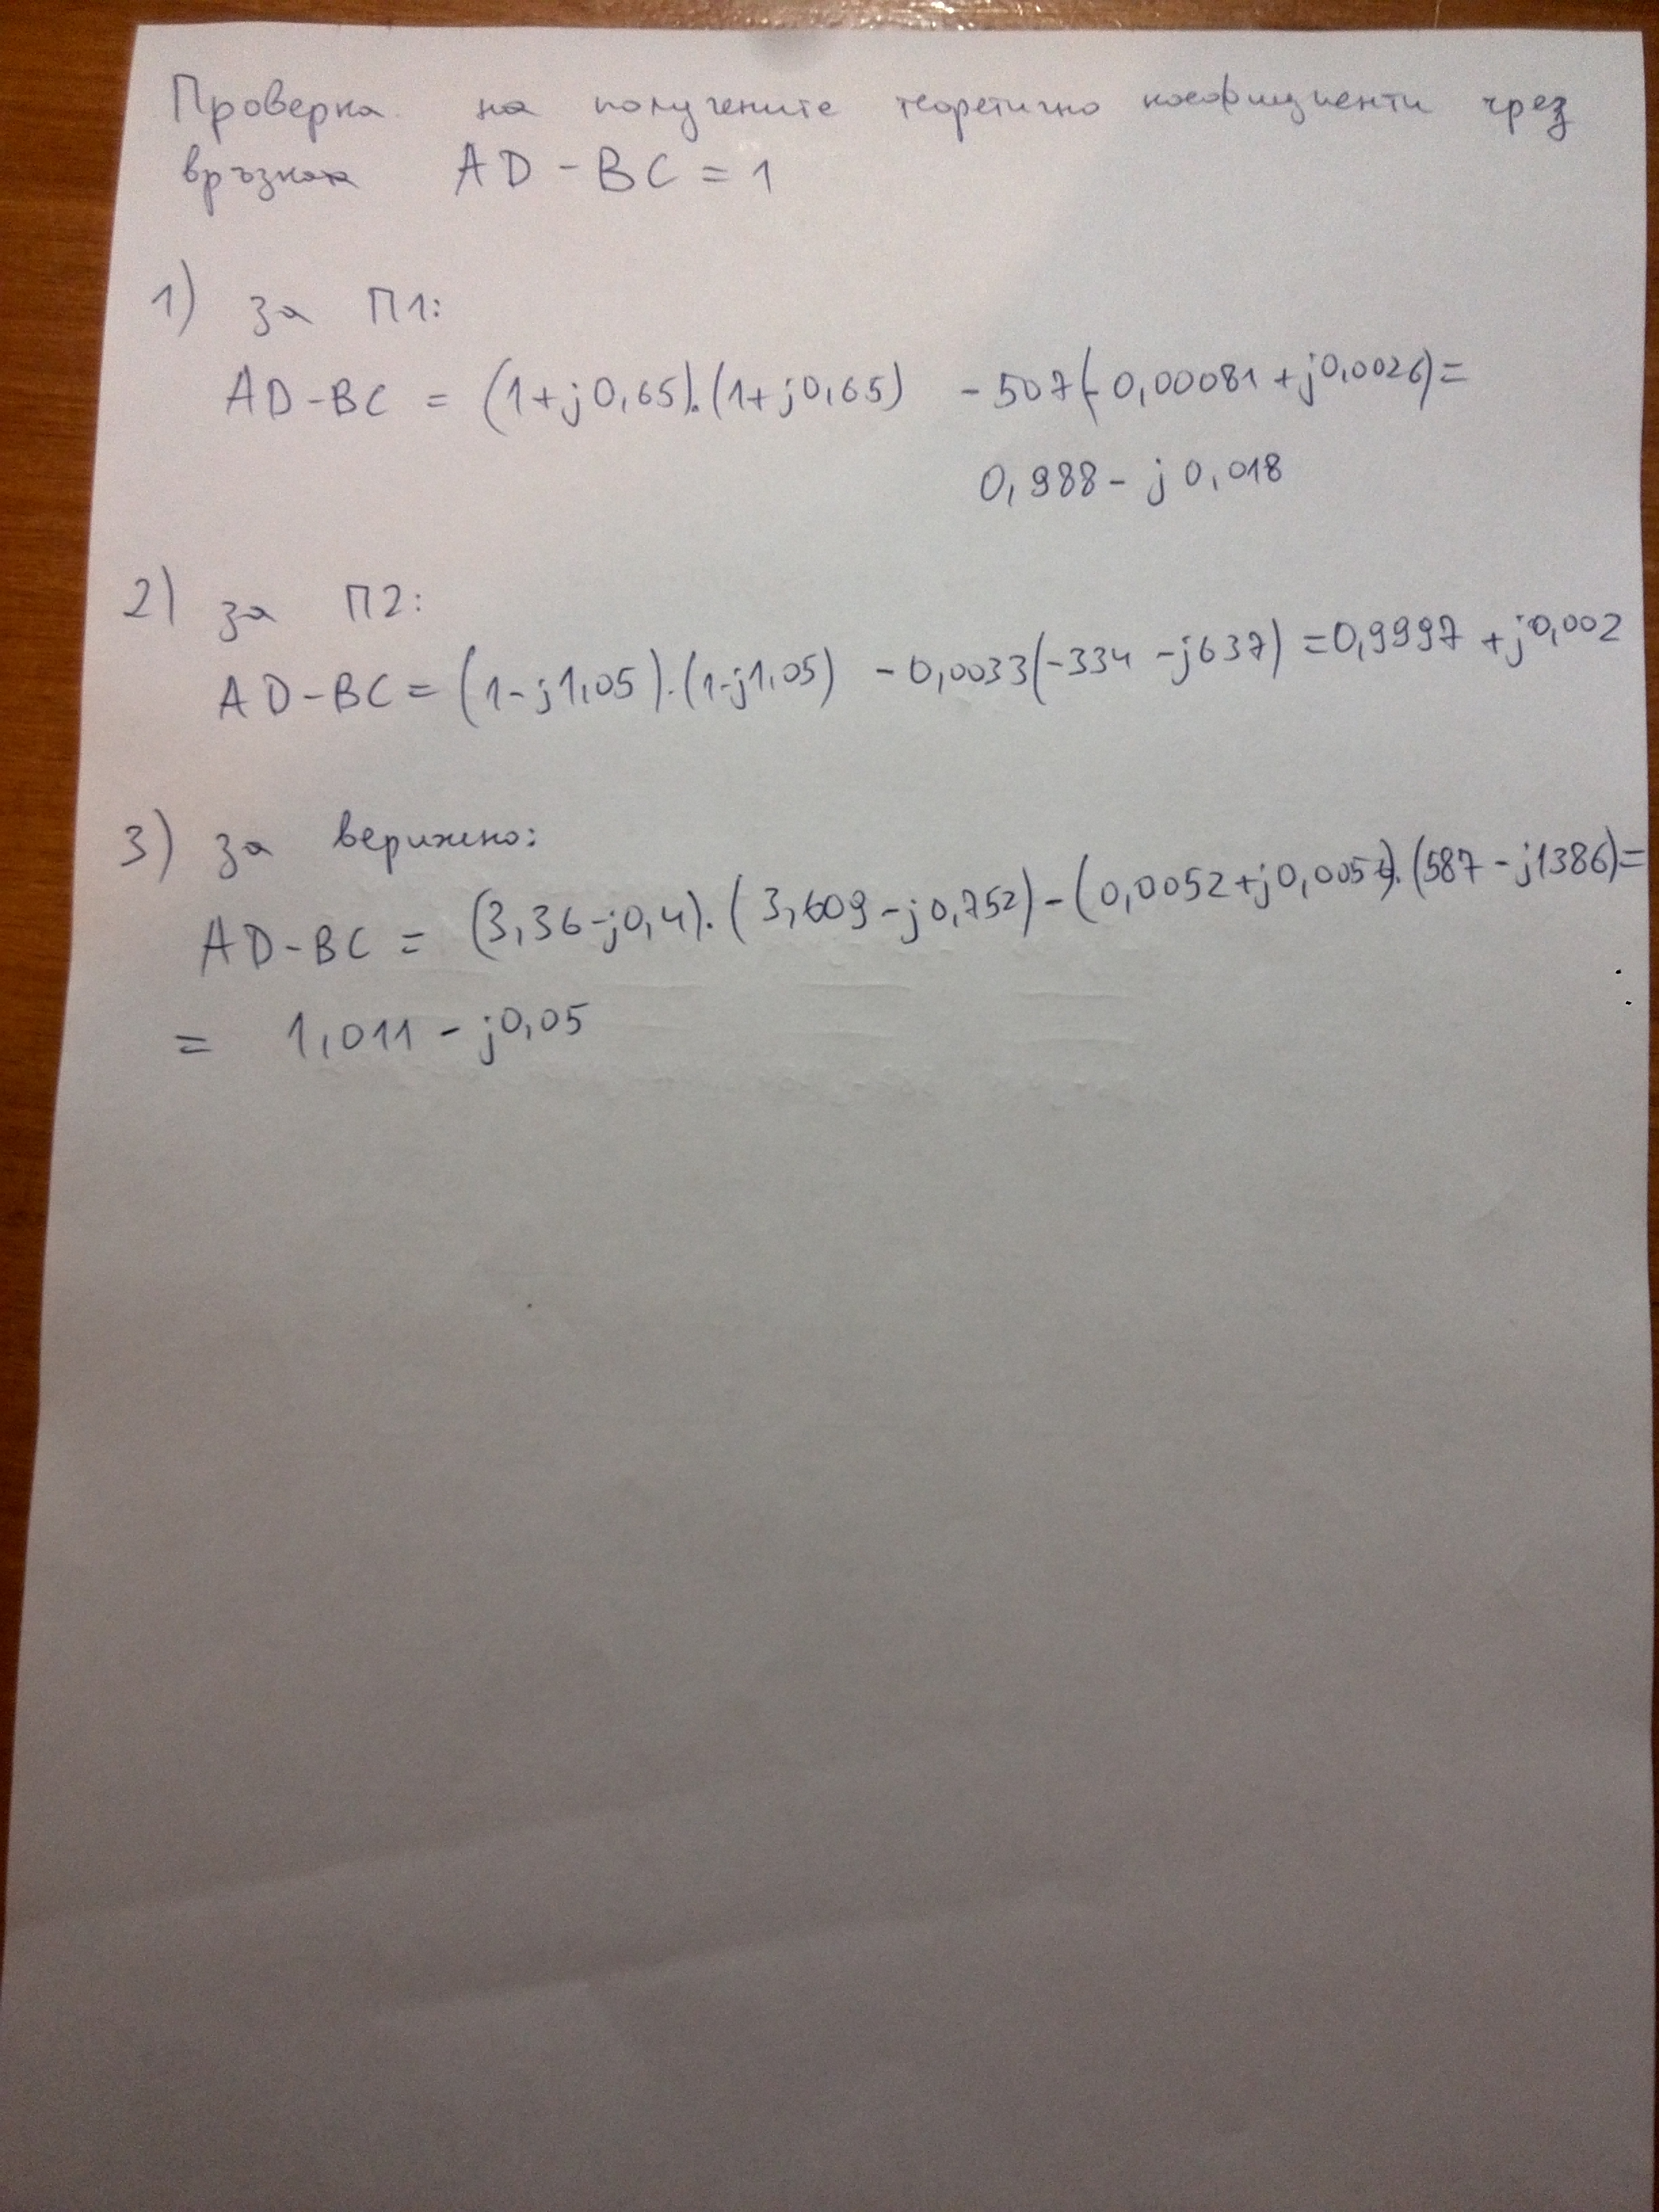 Проверка на получените теоретично коефициенти чрез
връзка AD-BC=1
1) за П1:
AD-BC = (1+j0,65).(1+j0,65) -507(-0,00081+j0,0026)=
0,988-j0,018
2) за П2:
AD-BC=(1-j1,05).(1-j1,05) -0,0033(-334-j637)=0,9997+j0,002
3) за верижно:
AD-BC = (3,36-j0,4).(3,609-j0,752)-(0,0052+j0,0054).(587-j1386)=
= 1,011-j0,05